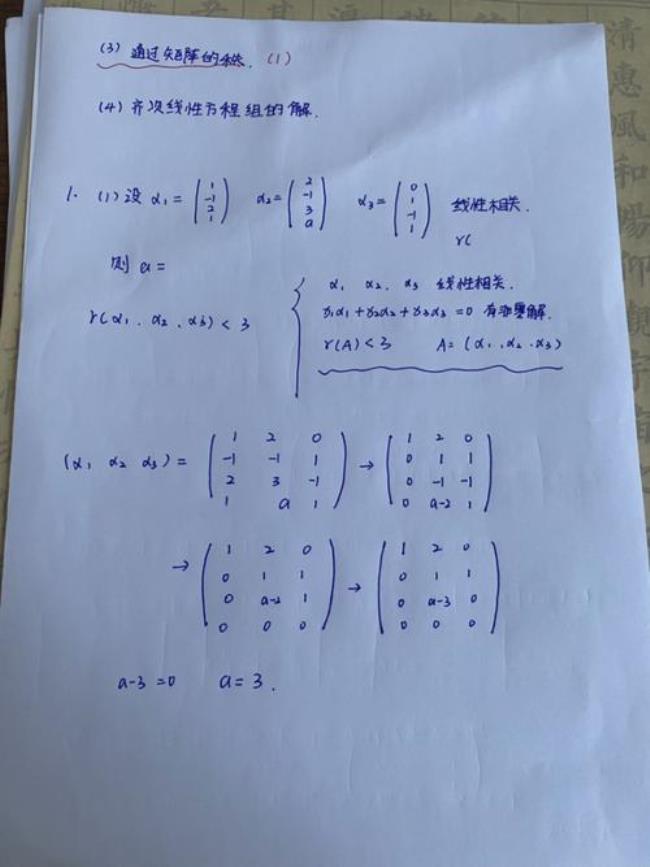 (3) 通过矩阵的秩. (1)
(4) 齐次线性方程组的解.
1. (1) 设 α₁ = (1 -1 2 1) α₂ = (2 -1 3 a) α₃ = (0 1 -1 1) 线性相关.
r(
则 a =
α₁ α₂ α₃ 线性相关.
r(α₁, α₂, α₃) < 3
x₁α₁ + x₂α₂ + x₃α₃ = 0 有非零解.
r(A) < 3 A = (α₁, α₂, α₃)
(α₁ α₂ α₃) =
1 2 0
-1 -1 1
2 3 -1
1 a 1
→
1 2 0
0 1 1
0 -1 -1
0 a-2 1
→
1 2 0
0 1 1
0 a-2 1
0 0 0
→
1 2 0
0 1 1
0 a-3 0
0 0 0
a-3 = 0 a = 3.
清
惠
風
和
暢
仰
觀
宇